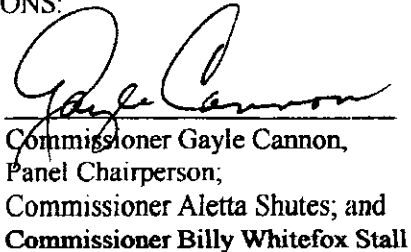 ONS:
Gayle Cannon
Commissioner Gayle Cannon,
Panel Chairperson;
Commissioner Aletta Shutes; and
Commissioner Billy Whitefox Stall